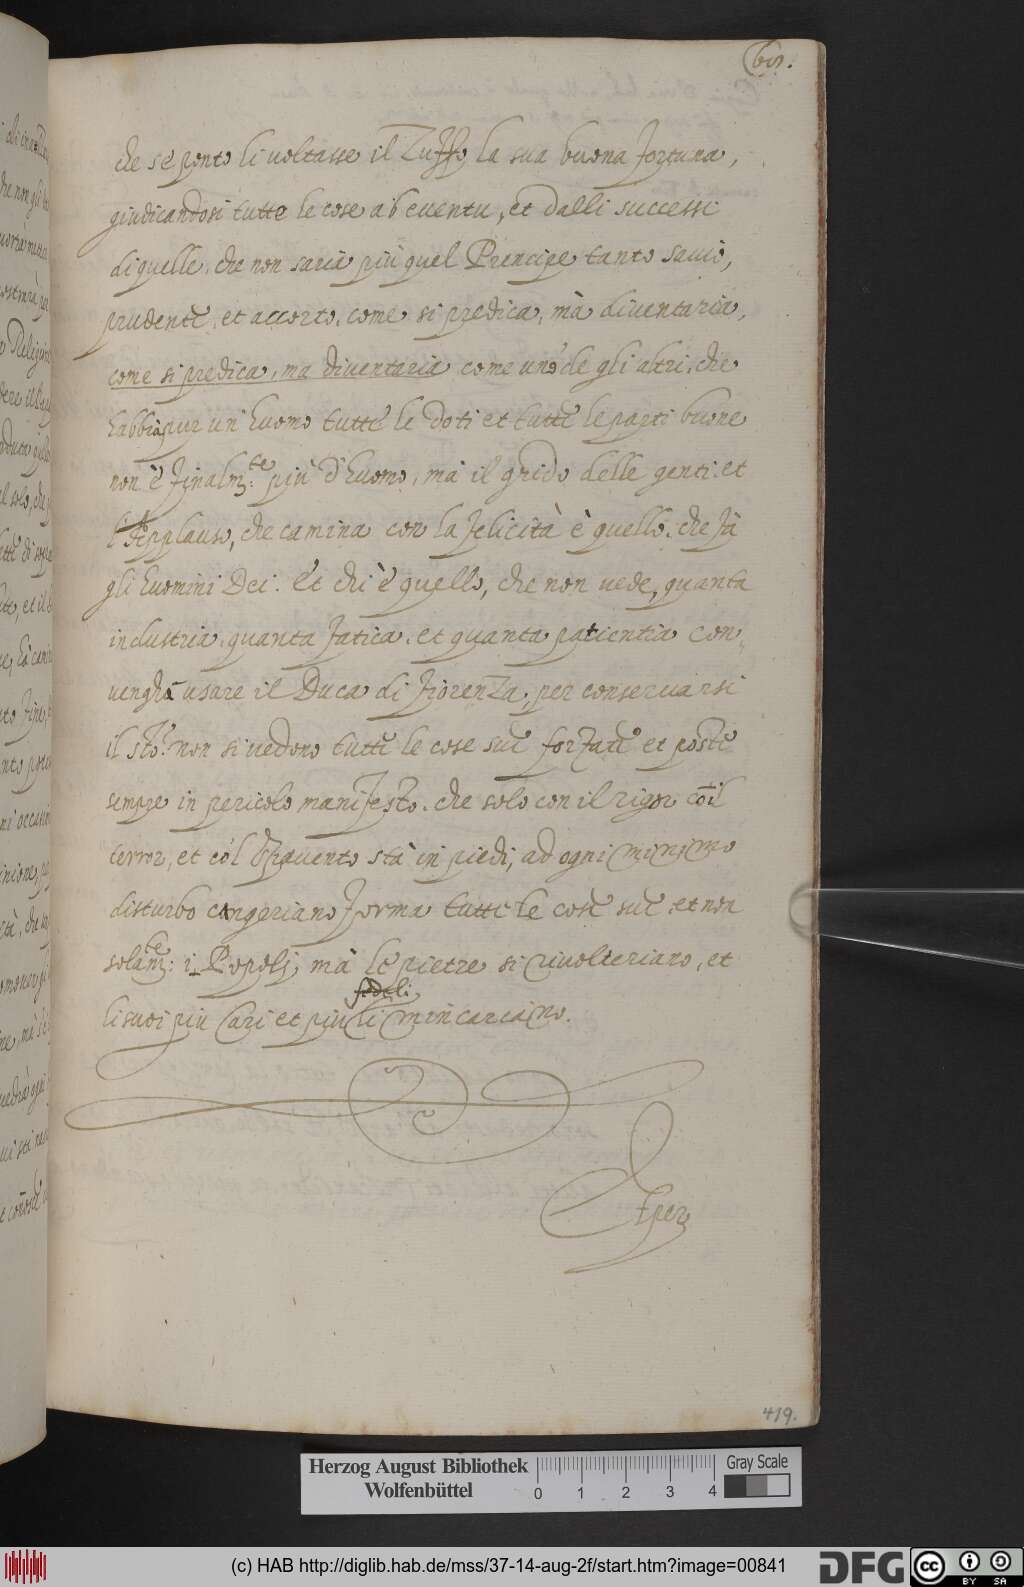 che se ponto li voltasse il Zuffo la sua buona fortuna,
giudicandosi tutte le cose ab euentu, et dalli successi
di quelle, che non saria più quel Prencipe tanto sauio,
prudente, et accorto, come si predica, mà diuentaria,
come si predica, ma diuentaria come uno de gli altri, che
habbia pur un huomo tutte le doti et tutte le parti buone
non è finalm.te più d'huomo, mà il grido delle genti et
l'Applauso, che camina con la felicità è quello, che fà
gli huomini Dei. Et chi è quello, che non uede, quanta
industria, quanta fatica, et quanta patientia con„
uenghi usare il Duca di Fiorenza, per conseruarsi
il sto. non si uedono tutte le cose sue forzate et poste
sempre in pericolo manifesto, che solo con il rigor co il
terror, et co'l spauento stà in piedi, ad ogni minimo
disturbo cangeriano forma tutte le cose sue, et non
solam.te i Popoli, mà le pietre si riuolteriano, et
li suoi più cari et più fedeli li mincarcaino.
Et per
419.
Herzog August Bibliothek
Wolfenbüttel
0 1 2 3 4
Gray Scale
(c) HAB http://diglib.hab.de/mss/37-14-aug-2f/start.htm?image=00841
DFG
cc BY SA